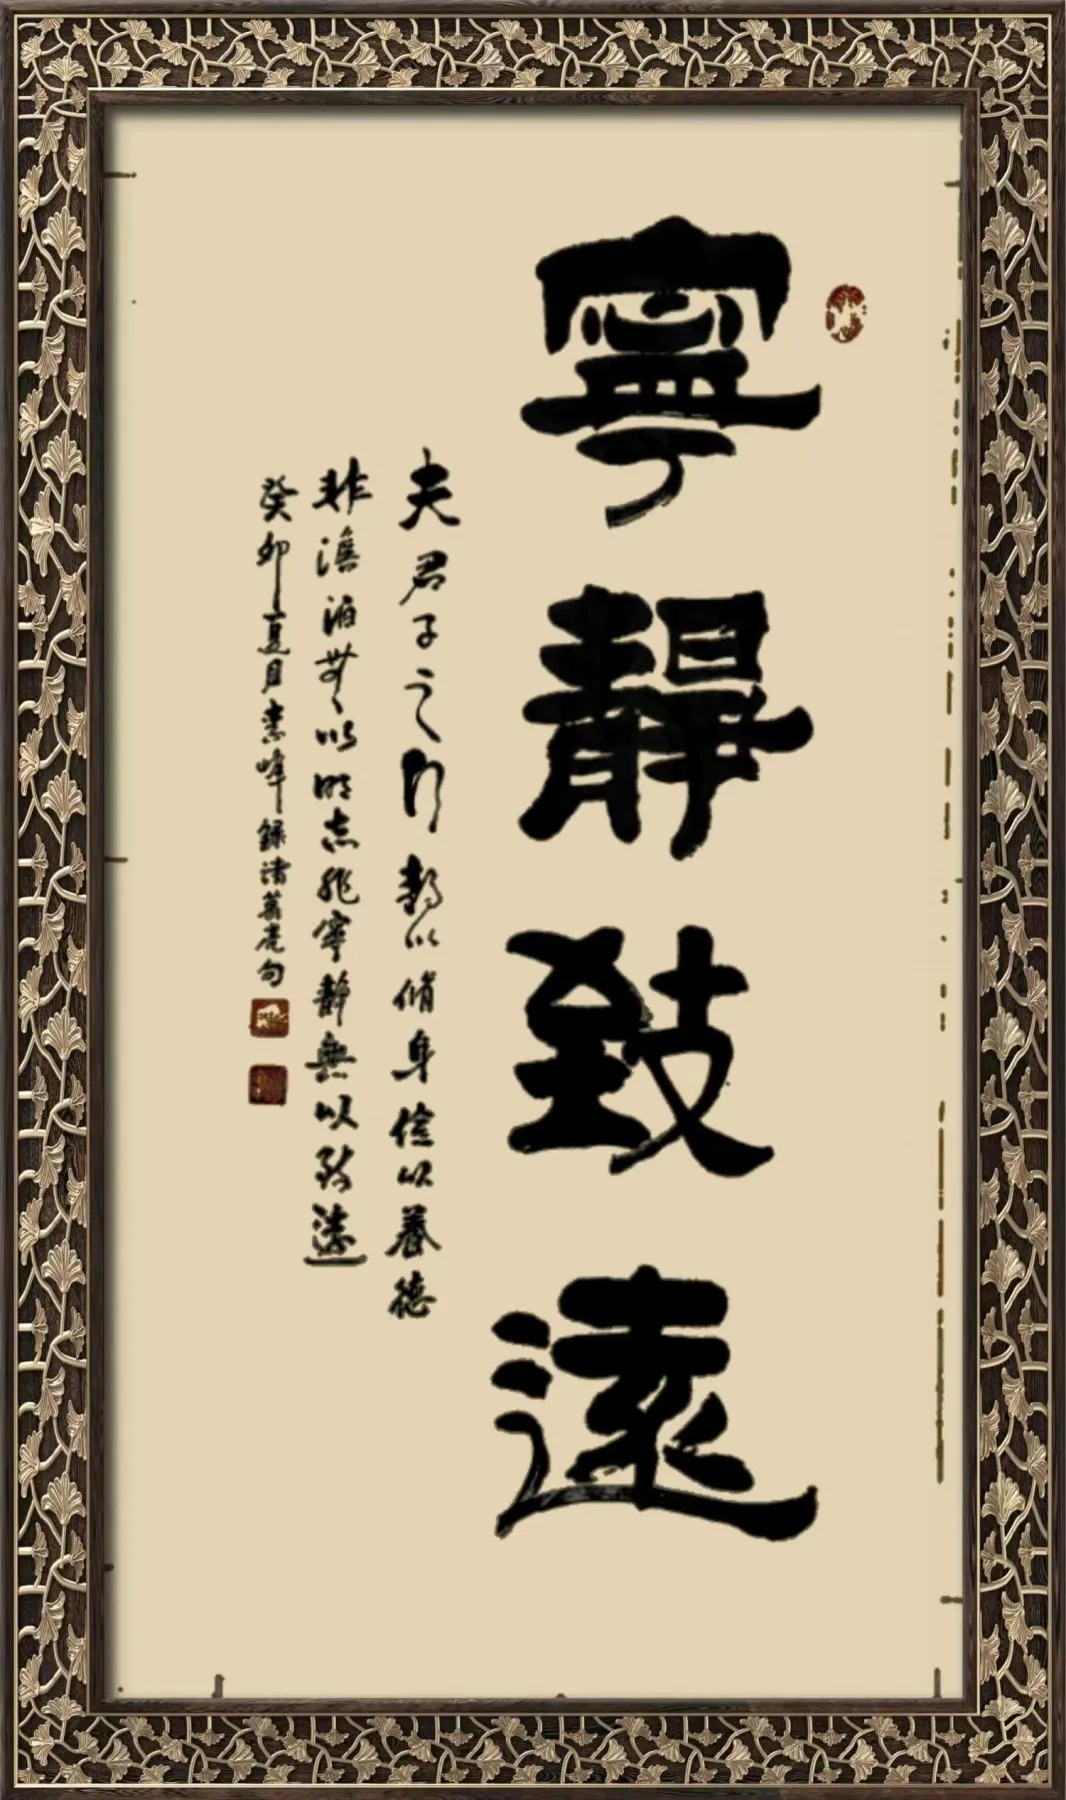 寧靜致遠
夫君子之行靜以脩身儉以養德
非澹泊無以明志非寧靜無以致遠
癸卯夏月峰錄諸葛亮句